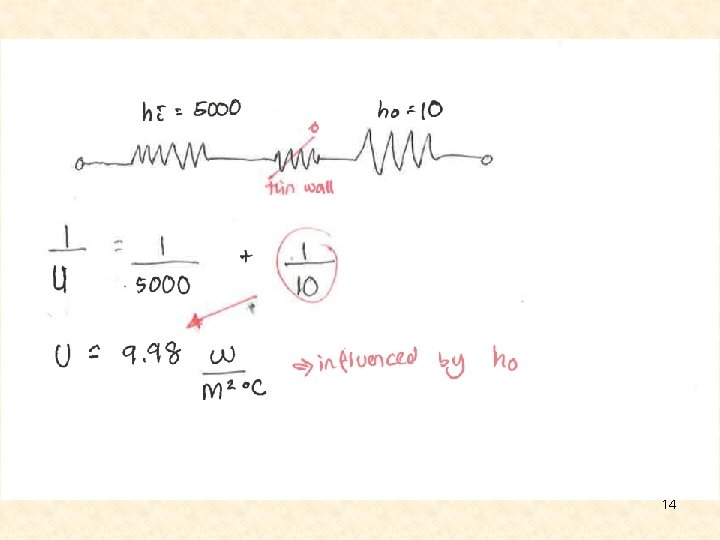 hi = 5000 ho = 10
0
thin wall
1/U = 1/5000 + 1/10
U = 9.98 W/m²°C ⇒ influenced by ho
14